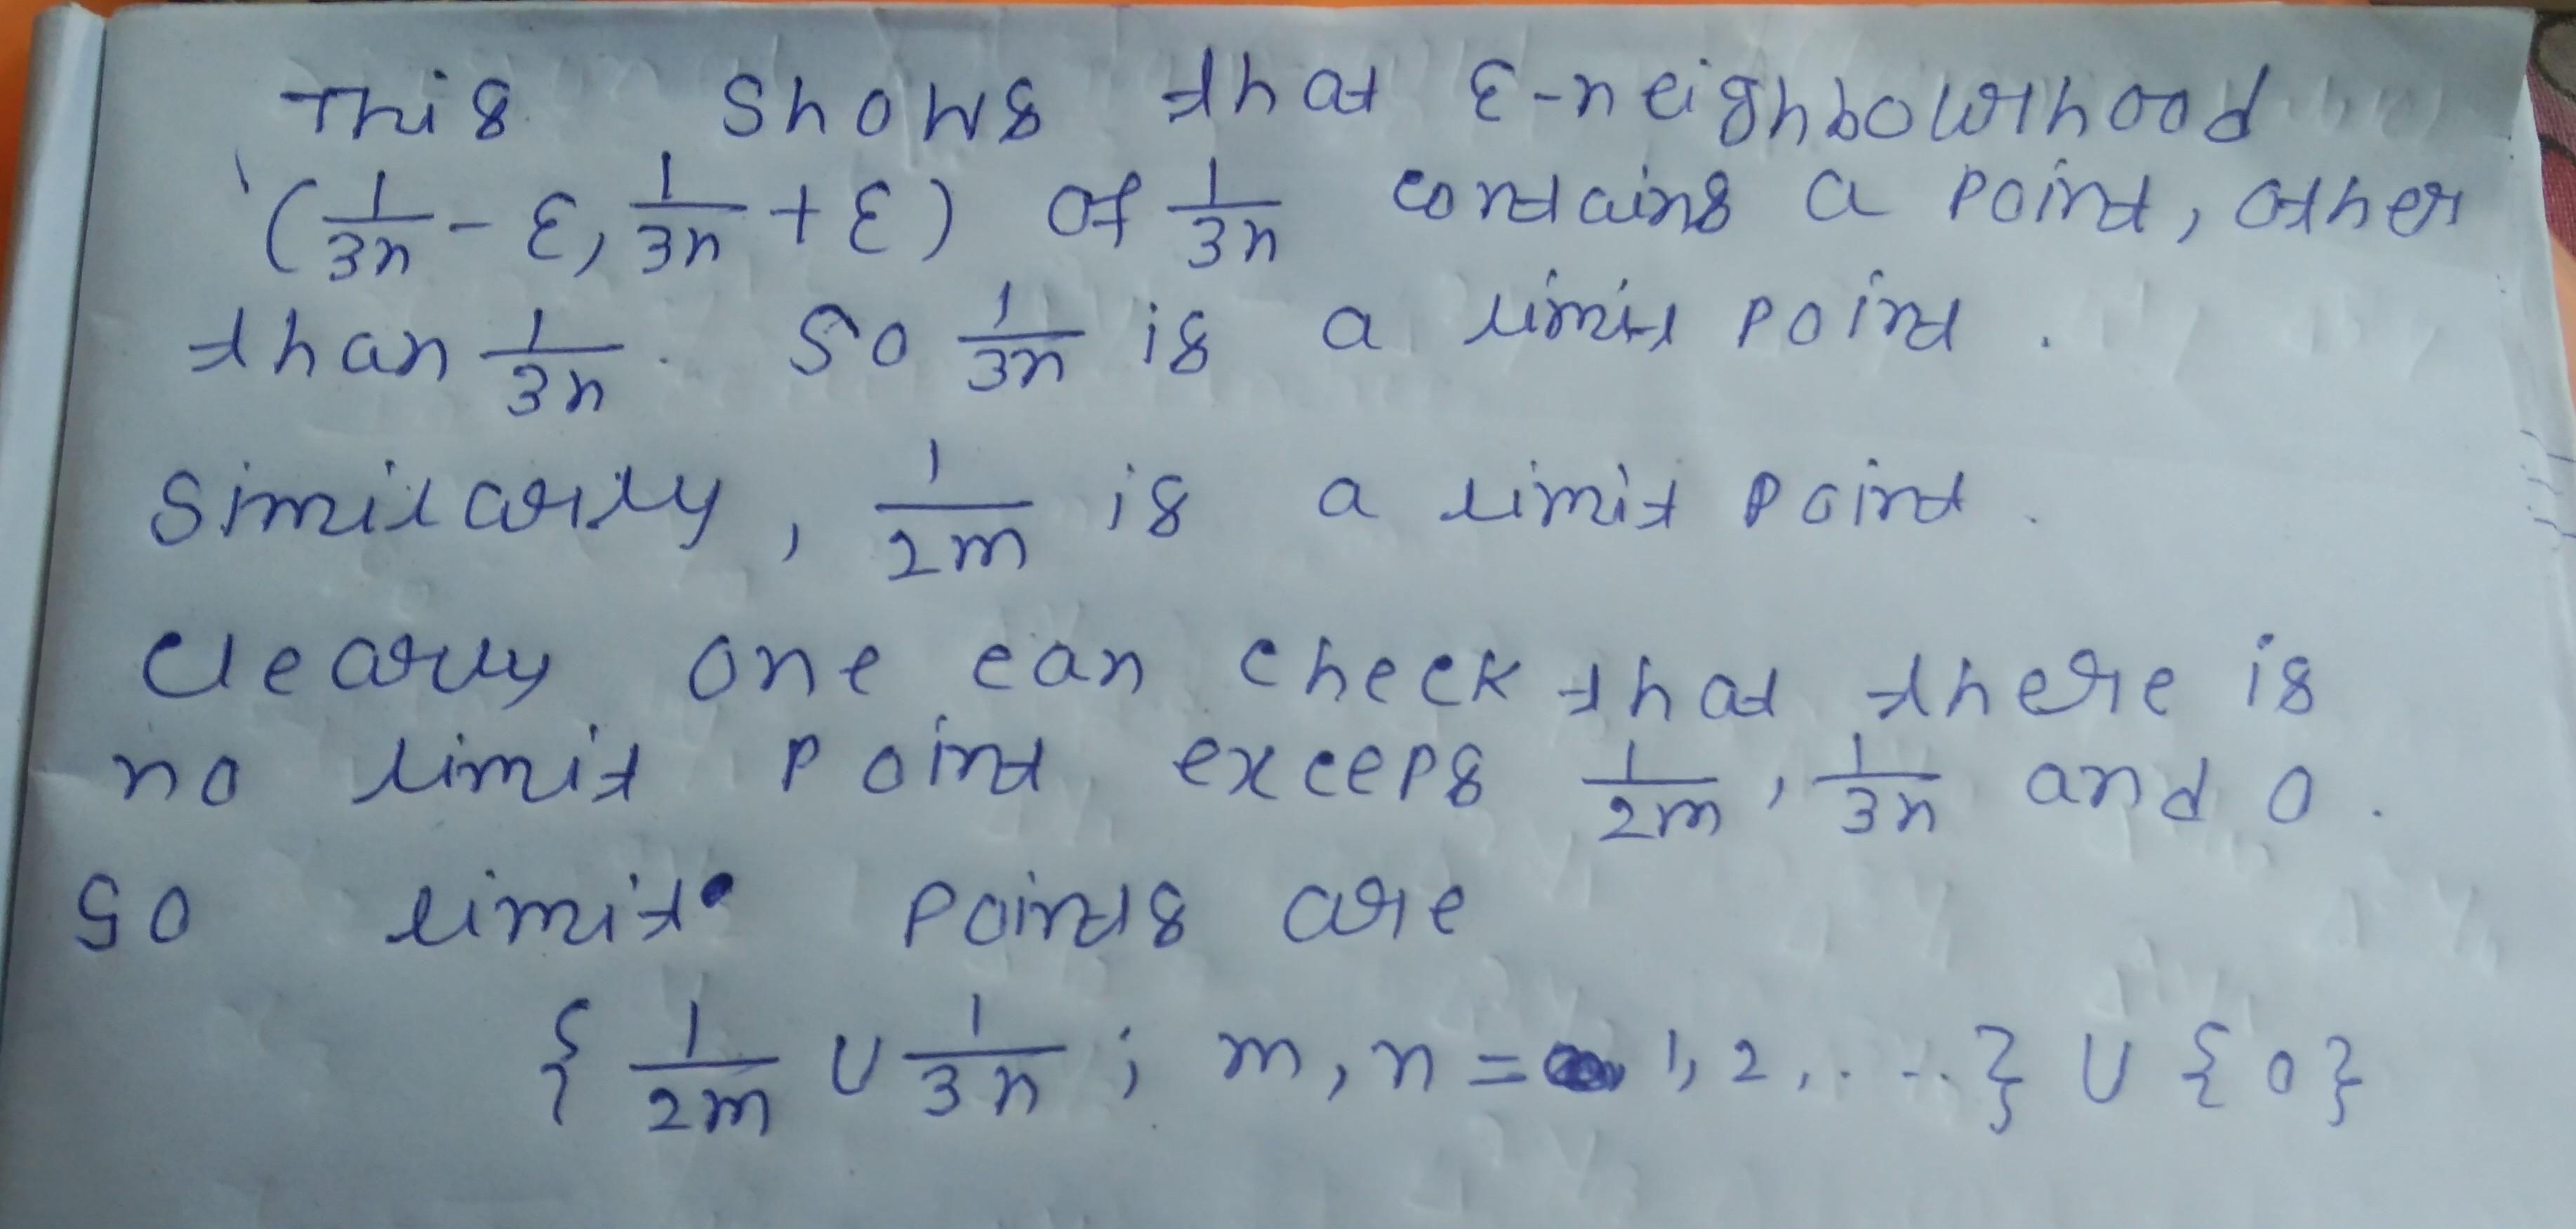 This shows that ε-neighbourhood
(1/3n - ε, 1/3n + ε) of 1/3n contains a point, other
than 1/3n. So 1/3n is a limit point.
Similarly, 1/2m is a limit point.
Clearly one can check that there is
no limit point exceps 1/2m, 1/3n and 0.
So limit points are
{ 1/2m ∪ 1/3n ; m, n = 1, 2, . . . . } ∪ { 0 }